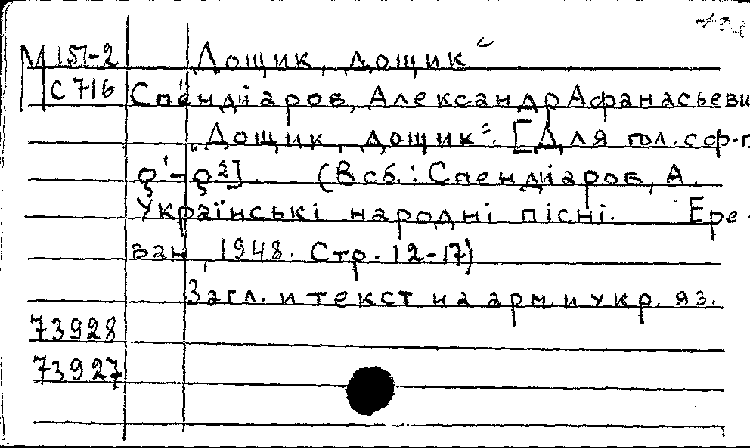 М 157-2 Дощик, дощик"
С 716 Спендіаров, Александр Афанасьеви
"Дощик, дощик". [Для гол. с ф-п
e¹-e²]. (В сб.: Спендіаров, А.
Українські народні пісні. Ере-
ван, 1948. Стр. 12-17)
Загл. и текст на арм. и укр. яз.
73928
73927